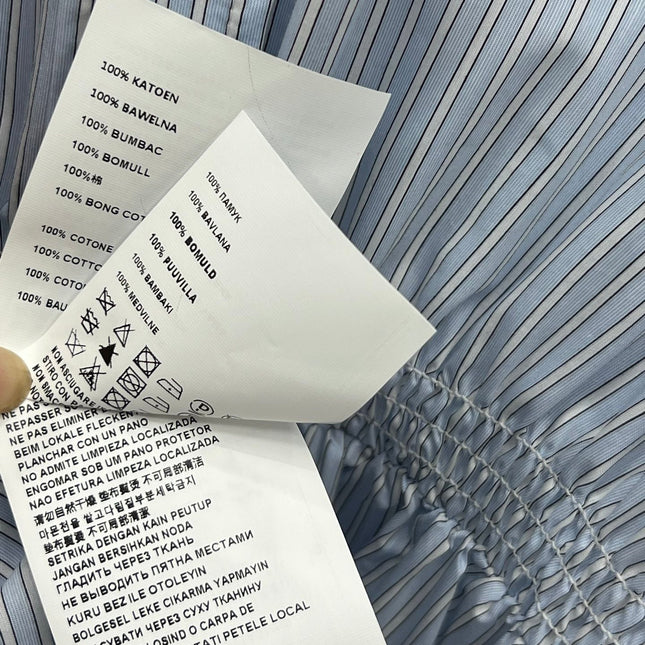 100% KATOEN
100% BAWEŁNA
100% BUMBAC
100% BOMULL
100%棉
100% BONG
100% COTONE
100% COTTO
100% COTO
100% BAU
100% ПАМУК
100% BAVLANA
100% BOMULD
100% PUUVILLA
100% BAMBAKI
100% MEDVILNE
NON ASCIUGARE
STIRO CON
NON SMAC
NE PAS
REPASSER
NE PAS ELIMINER
BEIM LOKALE FLECKENT
PLANCHAR CON UN PANO
NO ADMITE LIMPIEZA LOCALIZADA
ENGOMAR SOB UM PANO PROTETOR
NAO EFETURA LIMPEZA LOCALIZADA
请勿自然干燥 垫布熨烫 不可局部清洁
마른천을 깔고다림질부분세탁금지
垫布熨烫 不可局部清潔
SETRIKA DENGAN KAIN PEUTUP
JANGAN BERSIHKAN NODA
ГЛАДИТЬ ЧЕРЕЗ ТКАНЬ
НЕ ВЫВОДИТЬ ПЯТНА МЕСТАМИ
KURU BEZ ILE OTOLEYIN
BOLGESEL LEKE CIKARMA YAPMAYIN
СУВАТИ ЧЕРЕЗ СУХУ ТКАНИНУ
LOSIND O CARPA DE
TATI PETELE LOCAL